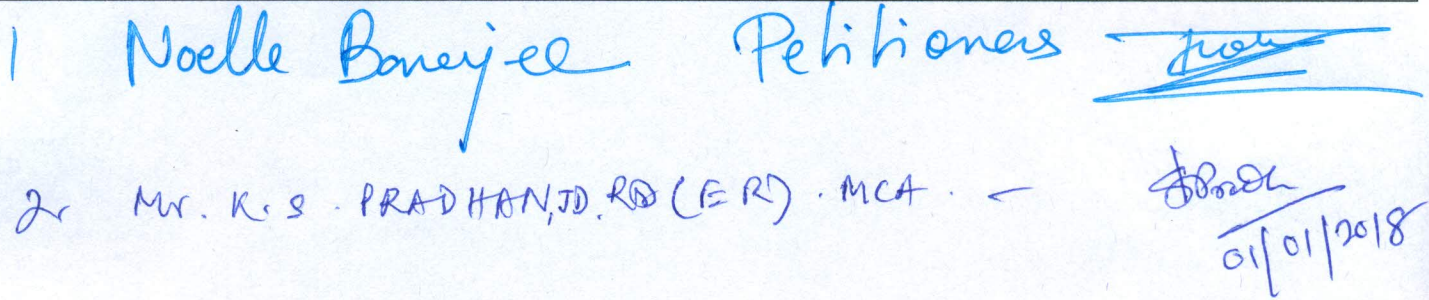 1 Noelle Banerjee Petitioners
2 Mr. K.S. PRADHAN, JD, RD (ER). MCA. -
01/01/2018